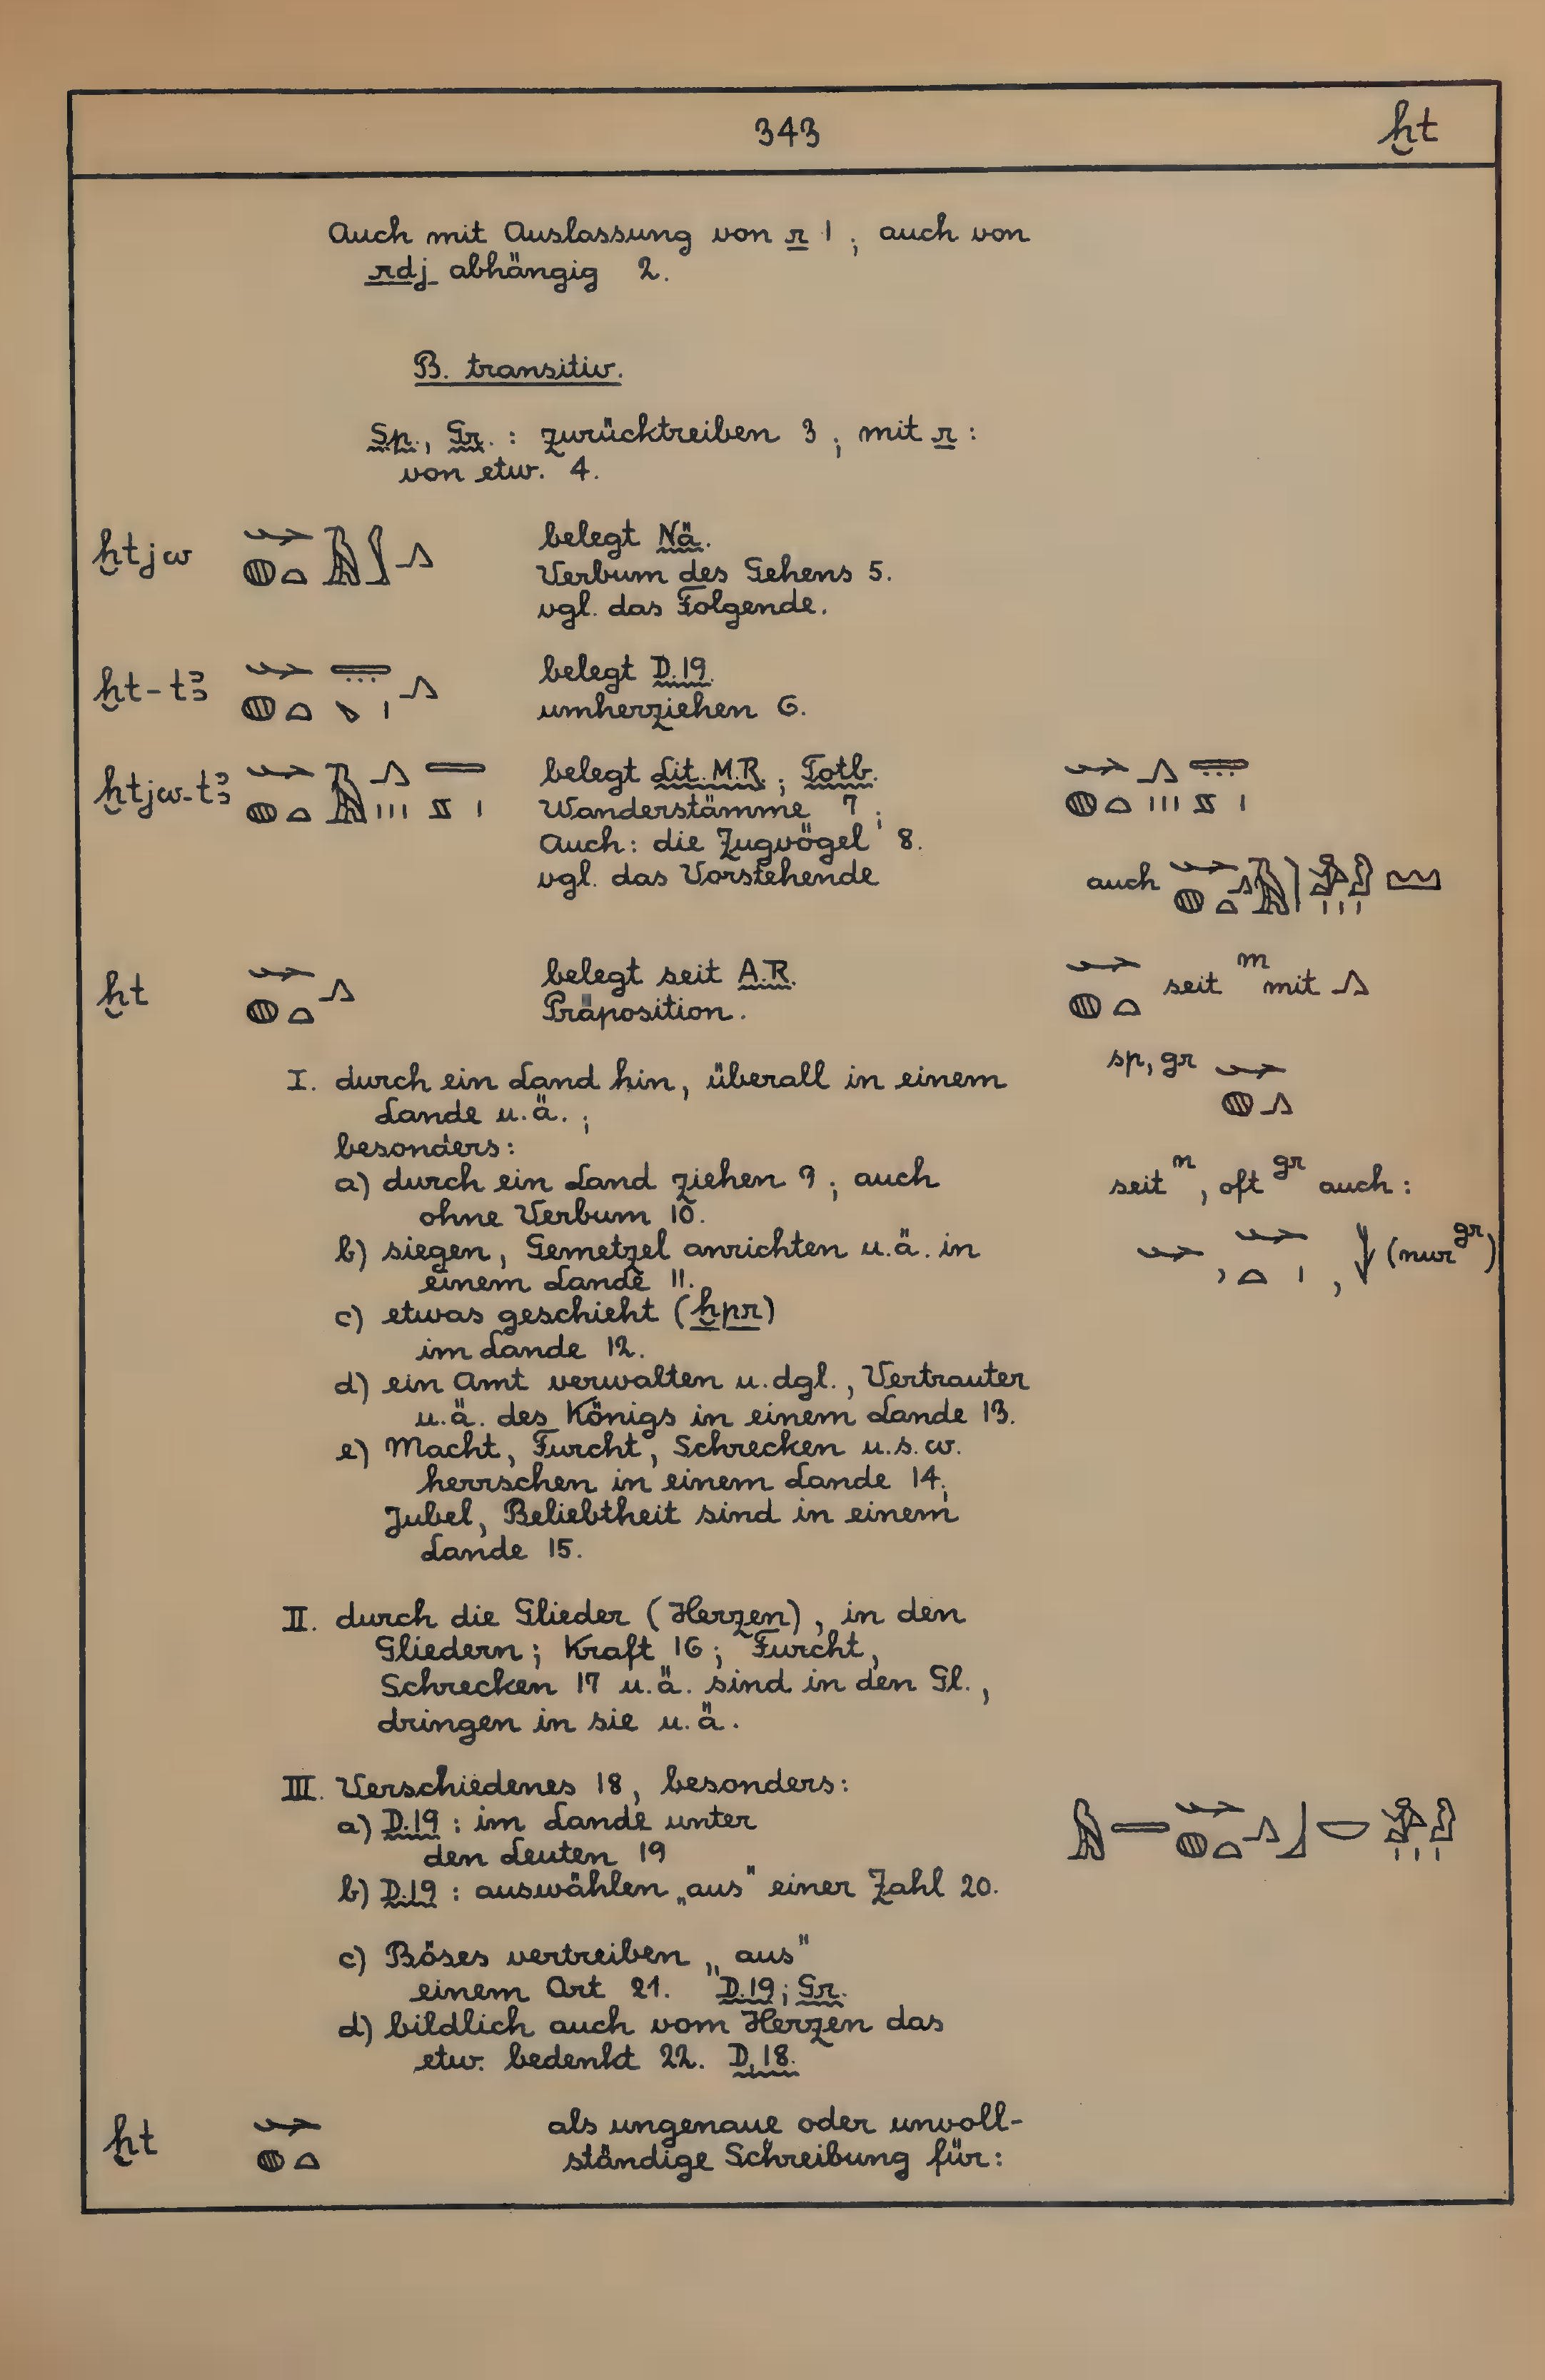 343 ḫt
Auch mit Auslassung von r 1 ; auch von
rdj abhängig 2.
B. transitiv.
Sp., Gr. : zurücktreiben 3 ; mit r :
von etw. 4.
ḫtjw belegt Nä.
Verbum des Gehens 5.
vgl. das Folgende.
ḫt-tꜣ belegt D.19.
umherziehen 6.
ḫtjw-tꜣ belegt Lit. M.R. ; Totb.
Wanderstämme 7 ;
Auch : die Zugvögel 8.
vgl. das Vorstehende
auch
ḫt belegt seit A.R.
Präposition.
seit m mit
sp, gr
I. durch ein Land hin, überall in einem
Lande u.ä. ;
besonders :
a) durch ein Land ziehen 9 ; auch
ohne Verbum 10.
seit n, oft gr auch :
b) siegen, Gemetzel anrichten u.ä. in
einem Lande 11.
, , (nur gr)
c) etwas geschieht (ḫpr)
im Lande 12.
d) ein Amt verwalten u.dgl., Vertrauter
u.ä. des Königs in einem Lande 13.
e) Macht, Furcht, Schrecken u.s.w.
herrschen in einem Lande 14;
Jubel, Beliebtheit sind in einem
Lande 15.
II. durch die Glieder (Herzen), in den
Gliedern ; Kraft 16 ; Furcht,
Schrecken 17 u.ä. sind in den Gl.,
dringen in sie u.ä.
III. Verschiedenes 18, besonders :
a) D.19 : im Lande unter
den Leuten 19
b) D.19 : auswählen „aus" einer Zahl 20.
c) Böses vertreiben „aus"
einem Ort 21. D.19; Gr.
d) bildlich auch vom Herzen das
etw. bedenkt 22. D.18.
ḫt als ungenaue oder unvoll-
ständige Schreibung für :